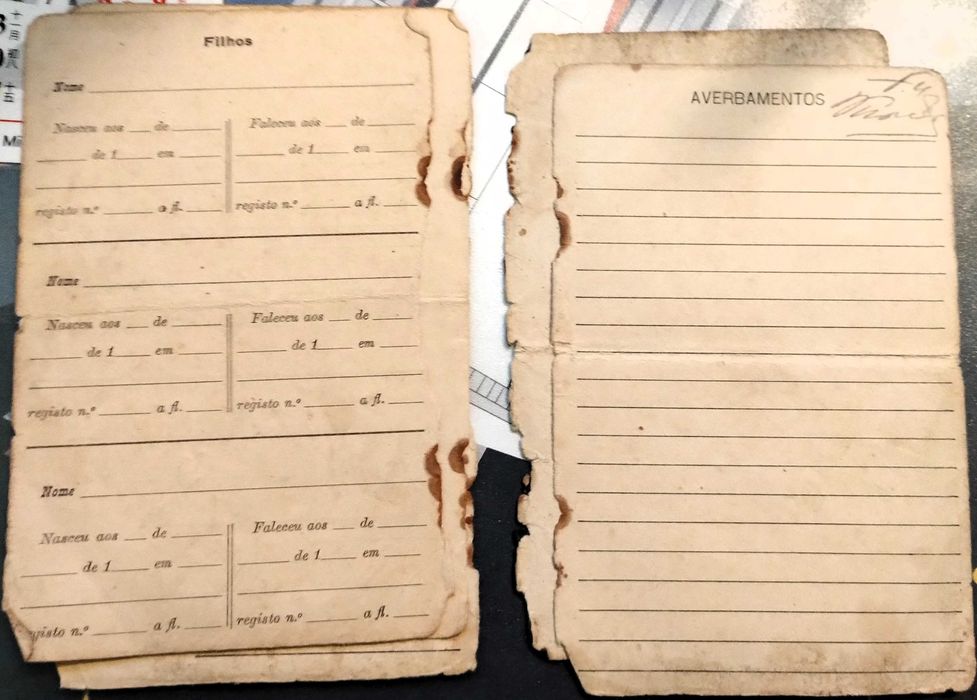 Filhos
Nome
Nasceu aos ___ de ___ Faleceu aos ___ de ___
___ de 1___ em ___ ___ de 1___ em ___
registo n.º ___ a fl. ___ registo n.º ___ a fl. ___
Nome
Nasceu aos ___ de ___ Faleceu aos ___ de ___
___ de 1___ em ___ ___ de 1___ em ___
registo n.º ___ a fl. ___ registo n.º ___ a fl. ___
Nome
Nasceu aos ___ de ___ Faleceu aos ___ de ___
___ de 1___ em ___ ___ de 1___ em ___
registo n.º ___ a fl. ___ registo n.º ___ a fl. ___
AVERBAMENTOS
十一月
初八
十五